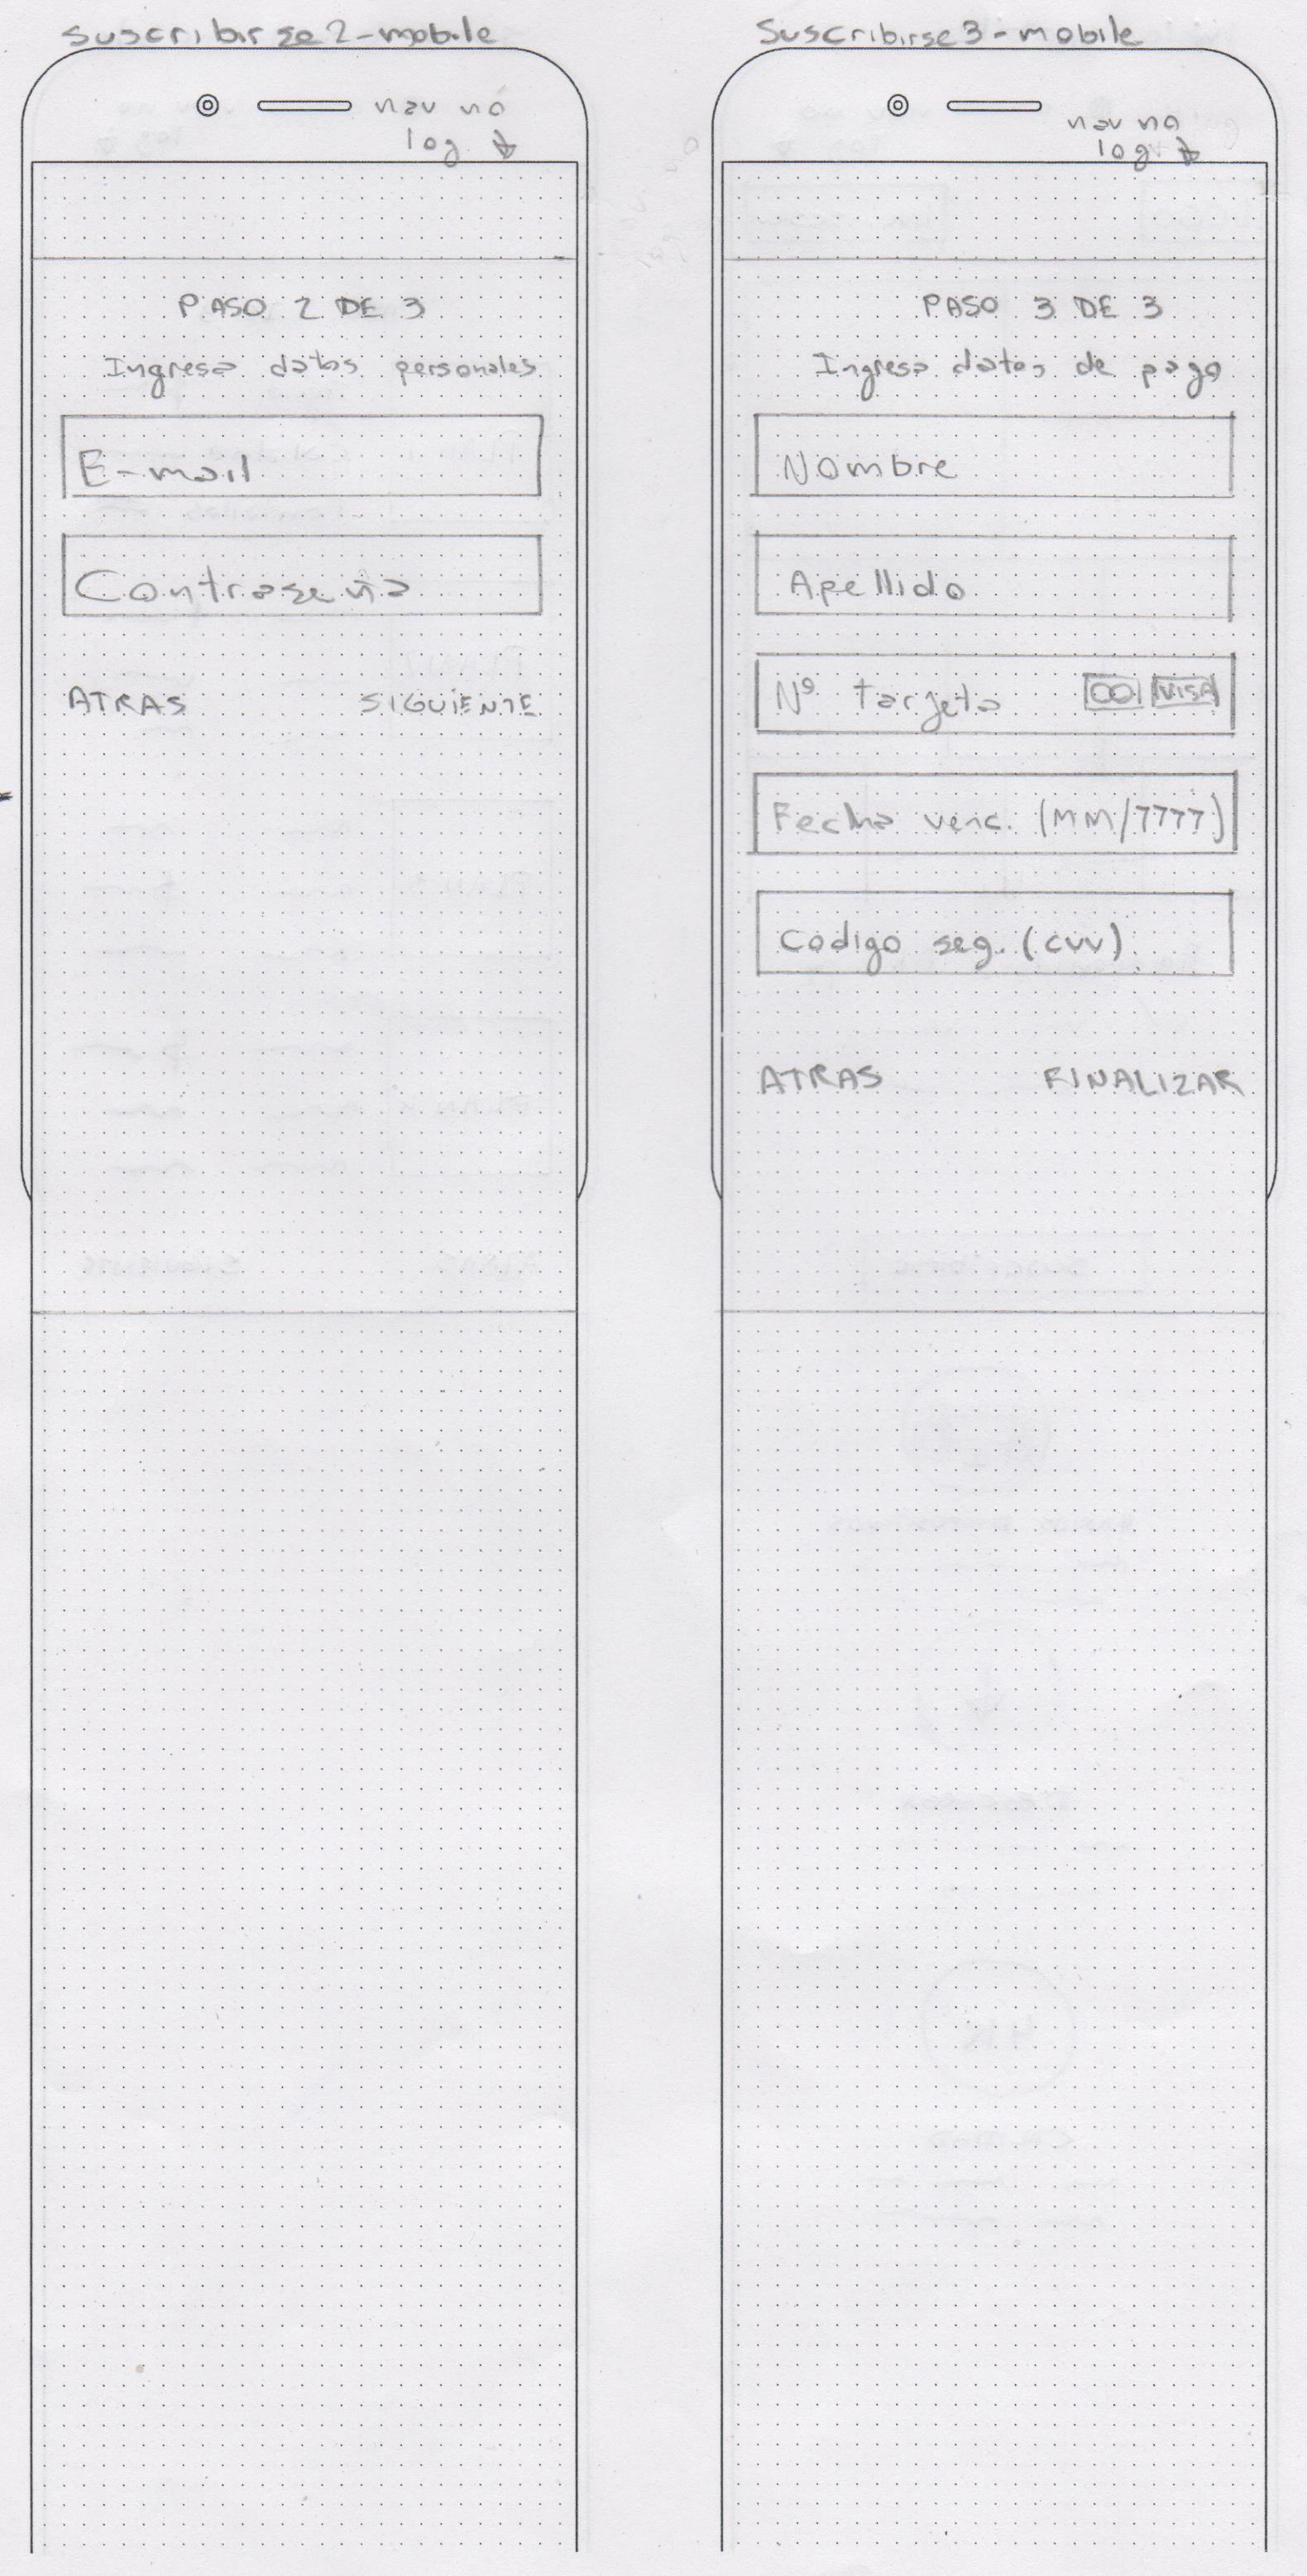 suscribirse2-mobile
nav no
log
PASO 2 DE 3
Ingresa datos personales
E-mail
Contraseña
ATRAS SIGUIENTE
Suscribirse3-mobile
nav no
log.
PASO 3 DE 3
Ingresa datos de pago
Nombre
Apellido
Nº tarjeta VISA
Fecha venc. (MM/YYYY)
Codigo seg. (CVV)
ATRAS FINALIZAR